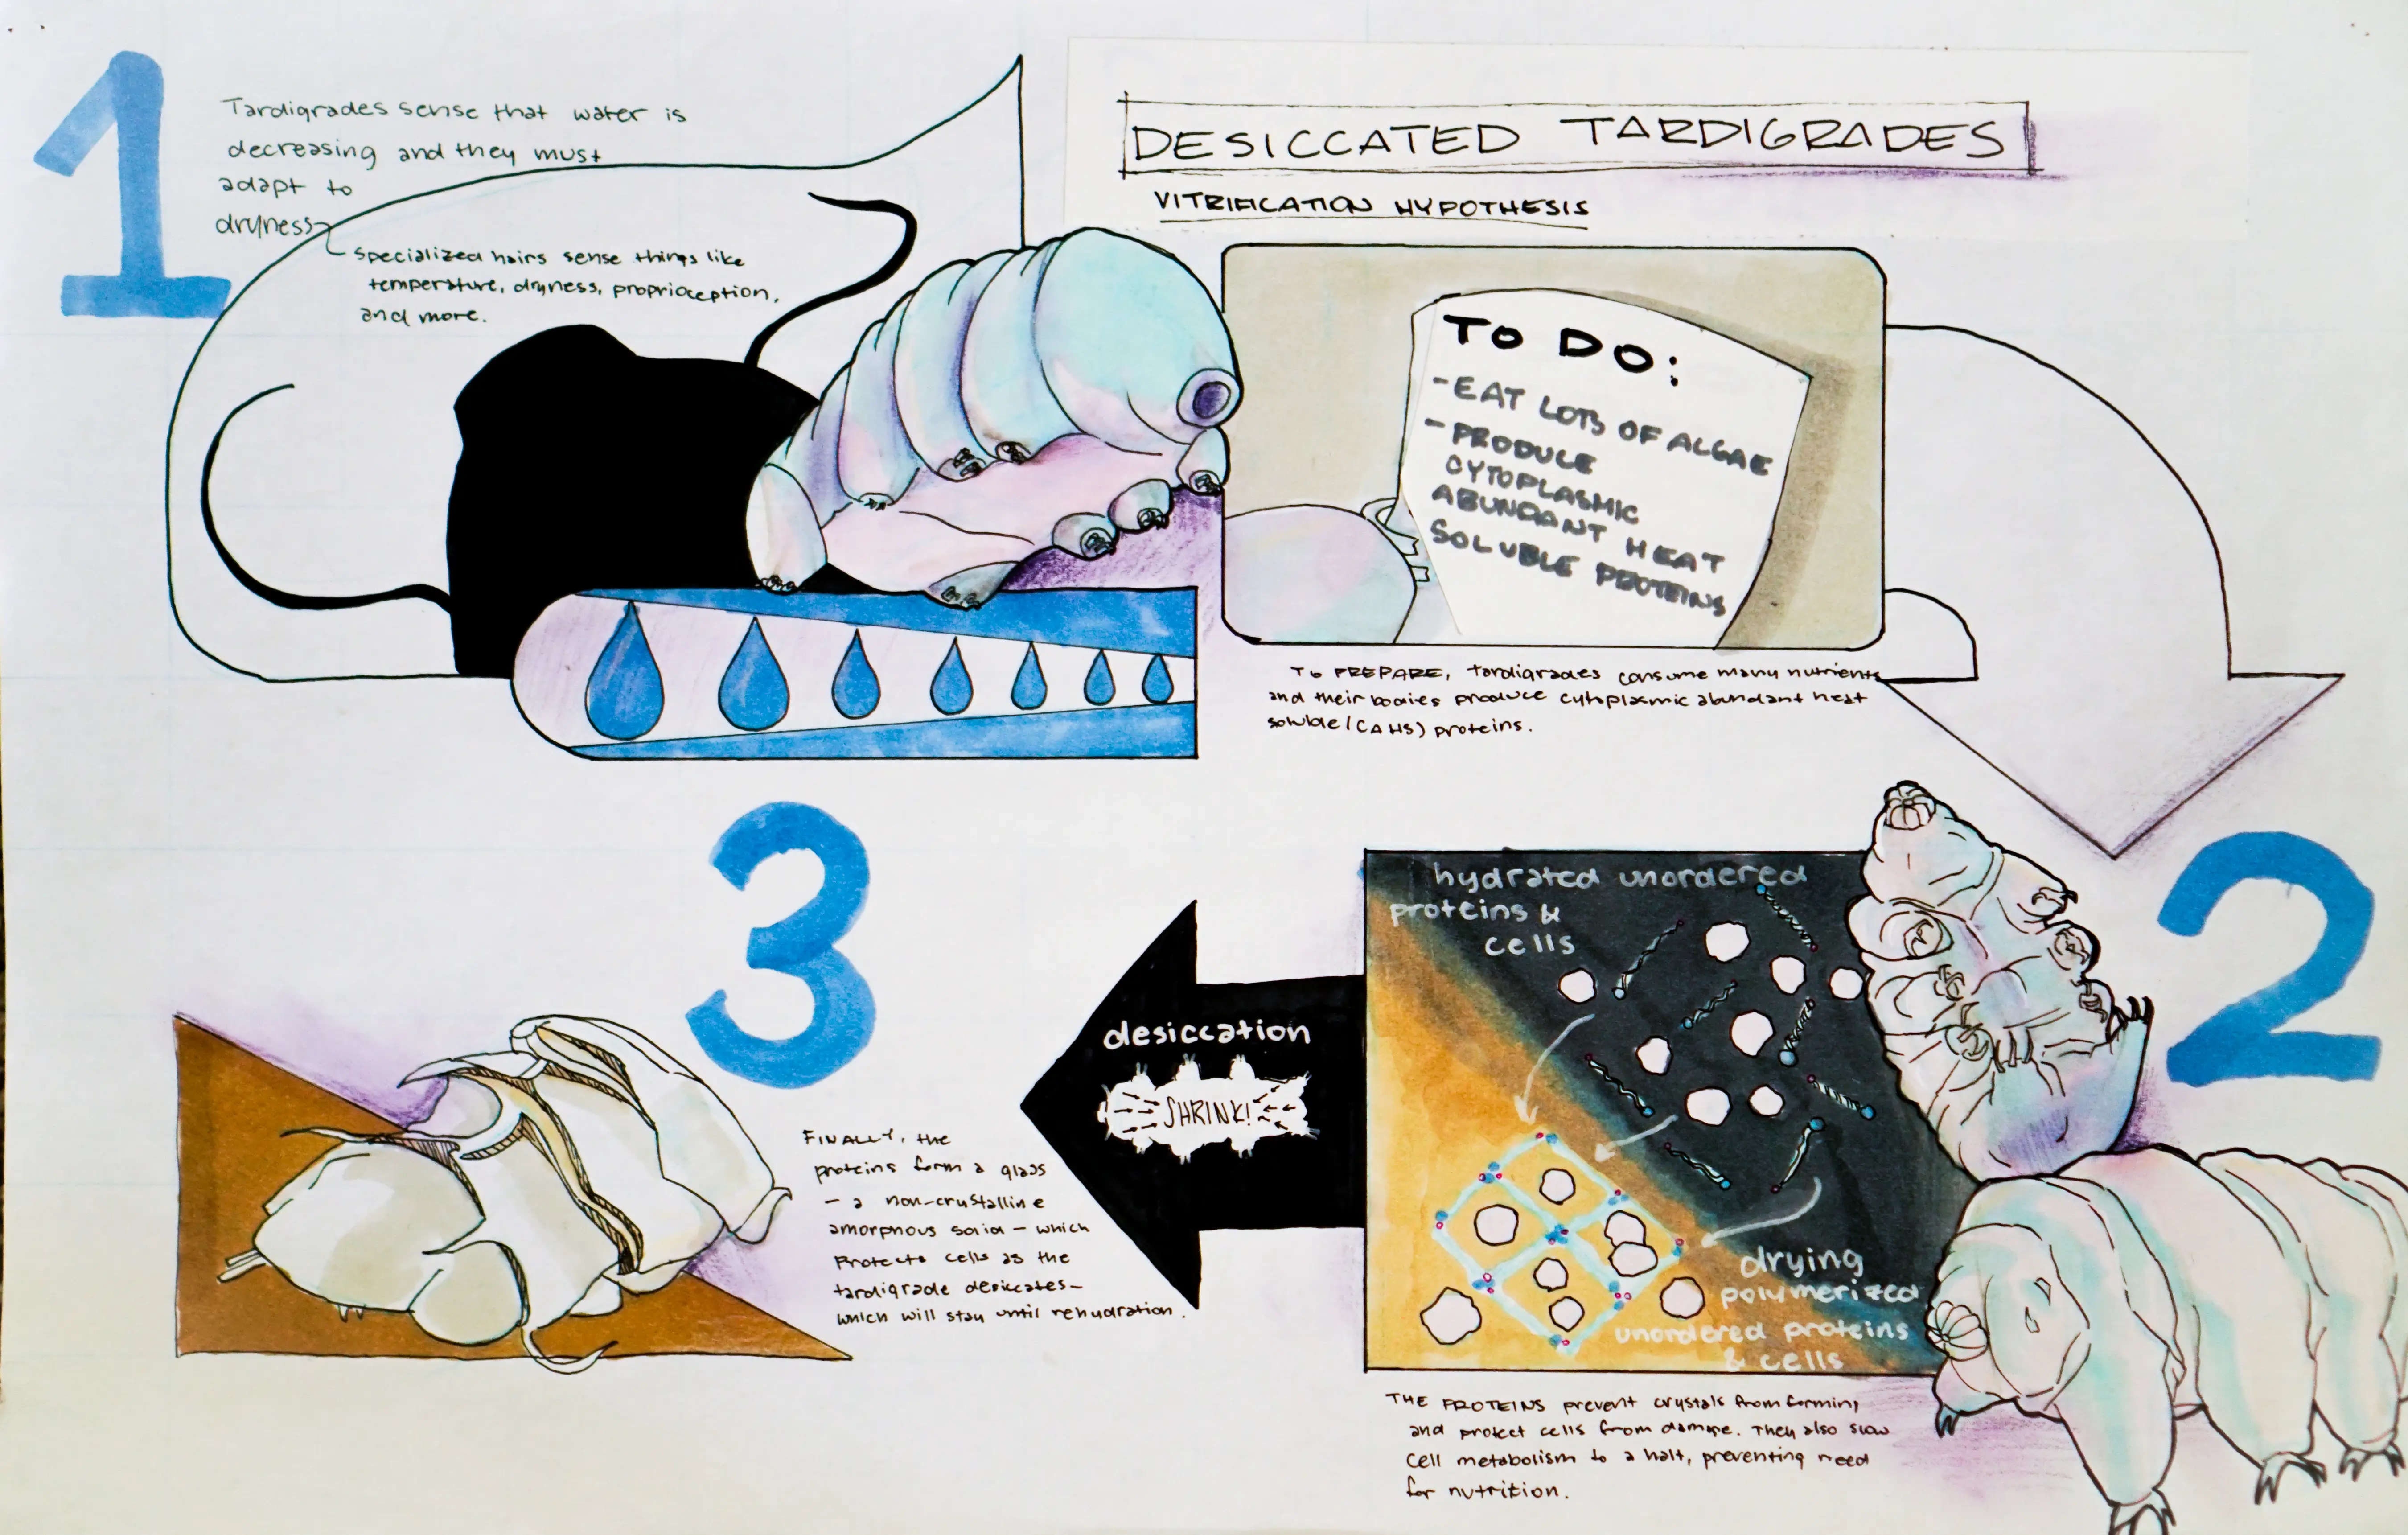 1
Tardigrades sense that water is
decreasing and they must
adapt to
dryness
specialized hairs sense things like
temperature, dryness, proprioception,
and more.
DESICCATED TARDIGRADES
VITRIFICATION HYPOTHESIS
TO DO:
- EAT LOTS OF ALGAE
- PRODUCE
CYTOPLASMIC
ABUNDANT HEAT
SOLUBLE PROTEINS
TO PREPARE, tardigrades consume many nutrients
and their bodies produce cytoplasmic abundant heat
soluble (CAHS) proteins.
2
hydrated unordered
proteins &
cells
drying
polymerized
unordered proteins
& cells
THE PROTEINS prevent crystals from forming
and protect cells from damage. They also slow
cell metabolism to a halt, preventing need
for nutrition.
desiccation
SHRINK!
3
FINALLY, the
proteins form a glass
- a non-crystalline
amorphous solid - which
protects cells as the
tardigrade desiccates-
which will stay until rehydration.